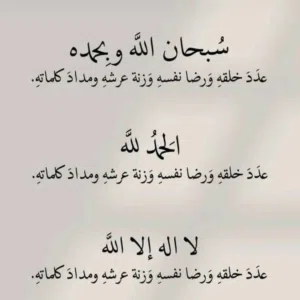 سُبحان اللَّه وبِحمده
عدَدَ خلقهِ وَرضا نفسهِ وَزنة عرشهِ ومدادَ كلماتهِ.
الَحمدُ للَّه
عدَدَ خلقهِ وَرضا نفسهِ وَزنة عرشهِ ومدادَ كلماتهِ.
لا اله إلا اللَّه
عدَدَ خلقهِ وَرضا نفسهِ وَزنة عرشهِ ومدادَ كلماتهِ.